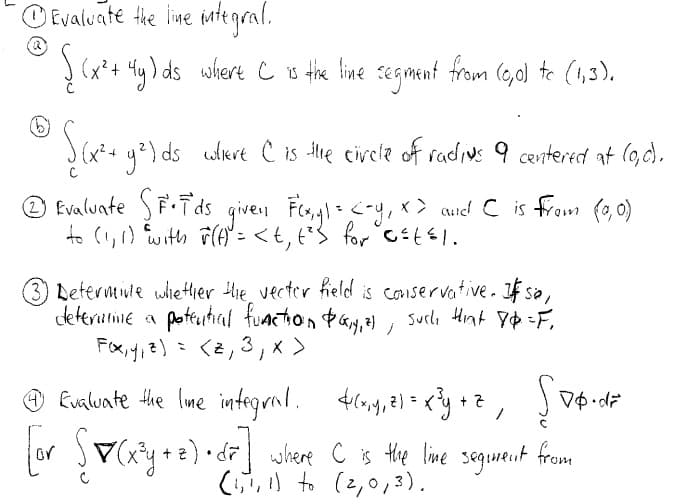 ① Evaluate the line integral.
ⓐ ∫_C (x² + 4y) ds where C is the line segment from (0,0) to (1,3).
ⓑ ∫_C (x² + y²) ds where C is the circle of radius 9 centered at (0,0).
② Evaluate ∫_C F⃗·T⃗ ds given F⃗(x,y) = <-y, x> and C is from (0,0)
to (1,1) with r⃗(t) = <t, t²> for 0≤t≤1.
③ Determine whether the vector field is conservative. If so,
determine a potential function φ(x,y,z), such that ∇φ = F,
F(x,y,z) = <z, 3, x>
④ Evaluate the line integral. φ(x,y,z) = x³y + z, ∫_C ∇φ·dr⃗
[or ∫_C ∇(x³y + z)·dr⃗] where C is the line segment from
(1,1,1) to (2,0,3).